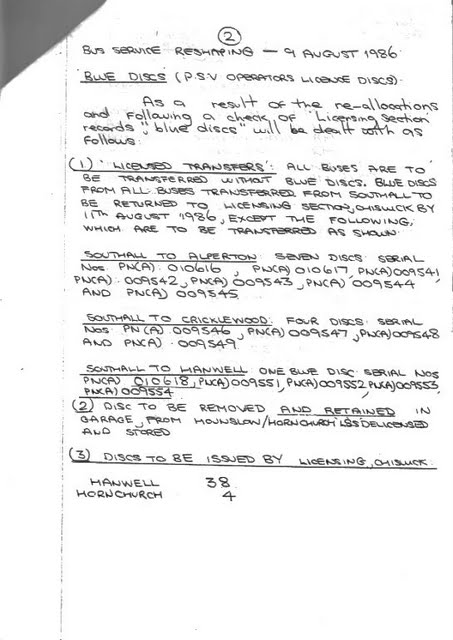 (2)
BUS SERVICE RESHAPING — 9 AUGUST 1986
BLUE DISCS (P.S.V OPERATORS LICENCE DISCS)
As a result of the re-allocations
and following a check of 'Licensing Section'
records, "blue discs" will be dealt with as
follows:
(1) 'LICENSED TRANSFERS': ALL BUSES ARE TO
BE TRANSFERRED WITHOUT BLUE DISCS. BLUE DISCS
FROM ALL BUSES TRANSFERRED FROM SOUTHALL TO
BE RETURNED TO LICENSING SECTION, CHISWICK BY
11TH AUGUST 1986, EXCEPT THE FOLLOWING,
WHICH ARE TO BE TRANSFERRED AS SHOWN:
SOUTHALL TO ALPERTON: SEVEN DISCS: SERIAL
Nos. PN(A) 010616, PN(A) 010617, PN(A) 009541
PN(A) 009542, PN(A) 009543, PN(A) 009544
AND PN(A) 009545.
SOUTHALL TO CRICKLEWOOD: FOUR DISCS: SERIAL
Nos. PN(A) 009546, PN(A) 009547, PN(A) 009548
AND PN(A) 009549.
SOUTHALL TO HANWELL ONE BLUE DISC: SERIAL Nos
PN(A) 010618, PN(A) 009551, PN(A) 009552, PN(A) 009553,
PN(A) 009554
(2) DISC TO BE REMOVED AND RETAINED IN
GARAGE, FROM HOUNSLOW/HORNCHURCH LS'S DELICENSED
AND STORED
(3) DISCS TO BE ISSUED BY LICENSING, CHISWICK:
HANWELL 38
HORNCHURCH 4